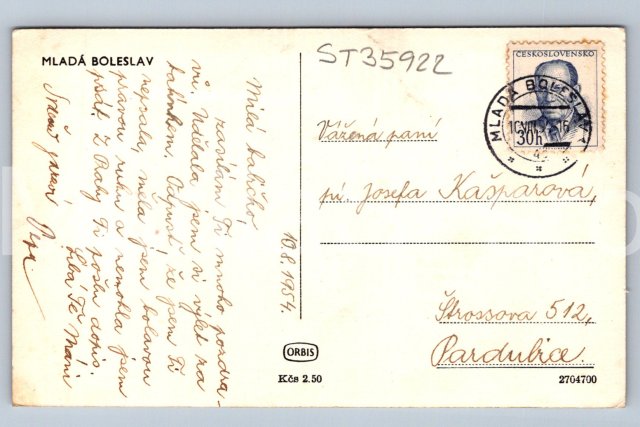 MLADÁ BOLESLAV
ST35922
ČESKOSLOVENSKO
MLADÁ BOLESLAV
30h
Milá babičko,
zasílám Ti mnoho pozdra-
vů. Udělala jsem si výlet za
tatínkem. Odpusť že jsem Ti
nepsala, měla jsem bolavou
pravou ruku a nemohla jsem
psát. Z Prahy Ti pošlu dopis.
líbá Tě
10.8.1954.
Vážená paní
pí. Josefa Kašparová,
Štrossova 512,
Pardubice.
ORBIS
Kčs 2.50
2704700